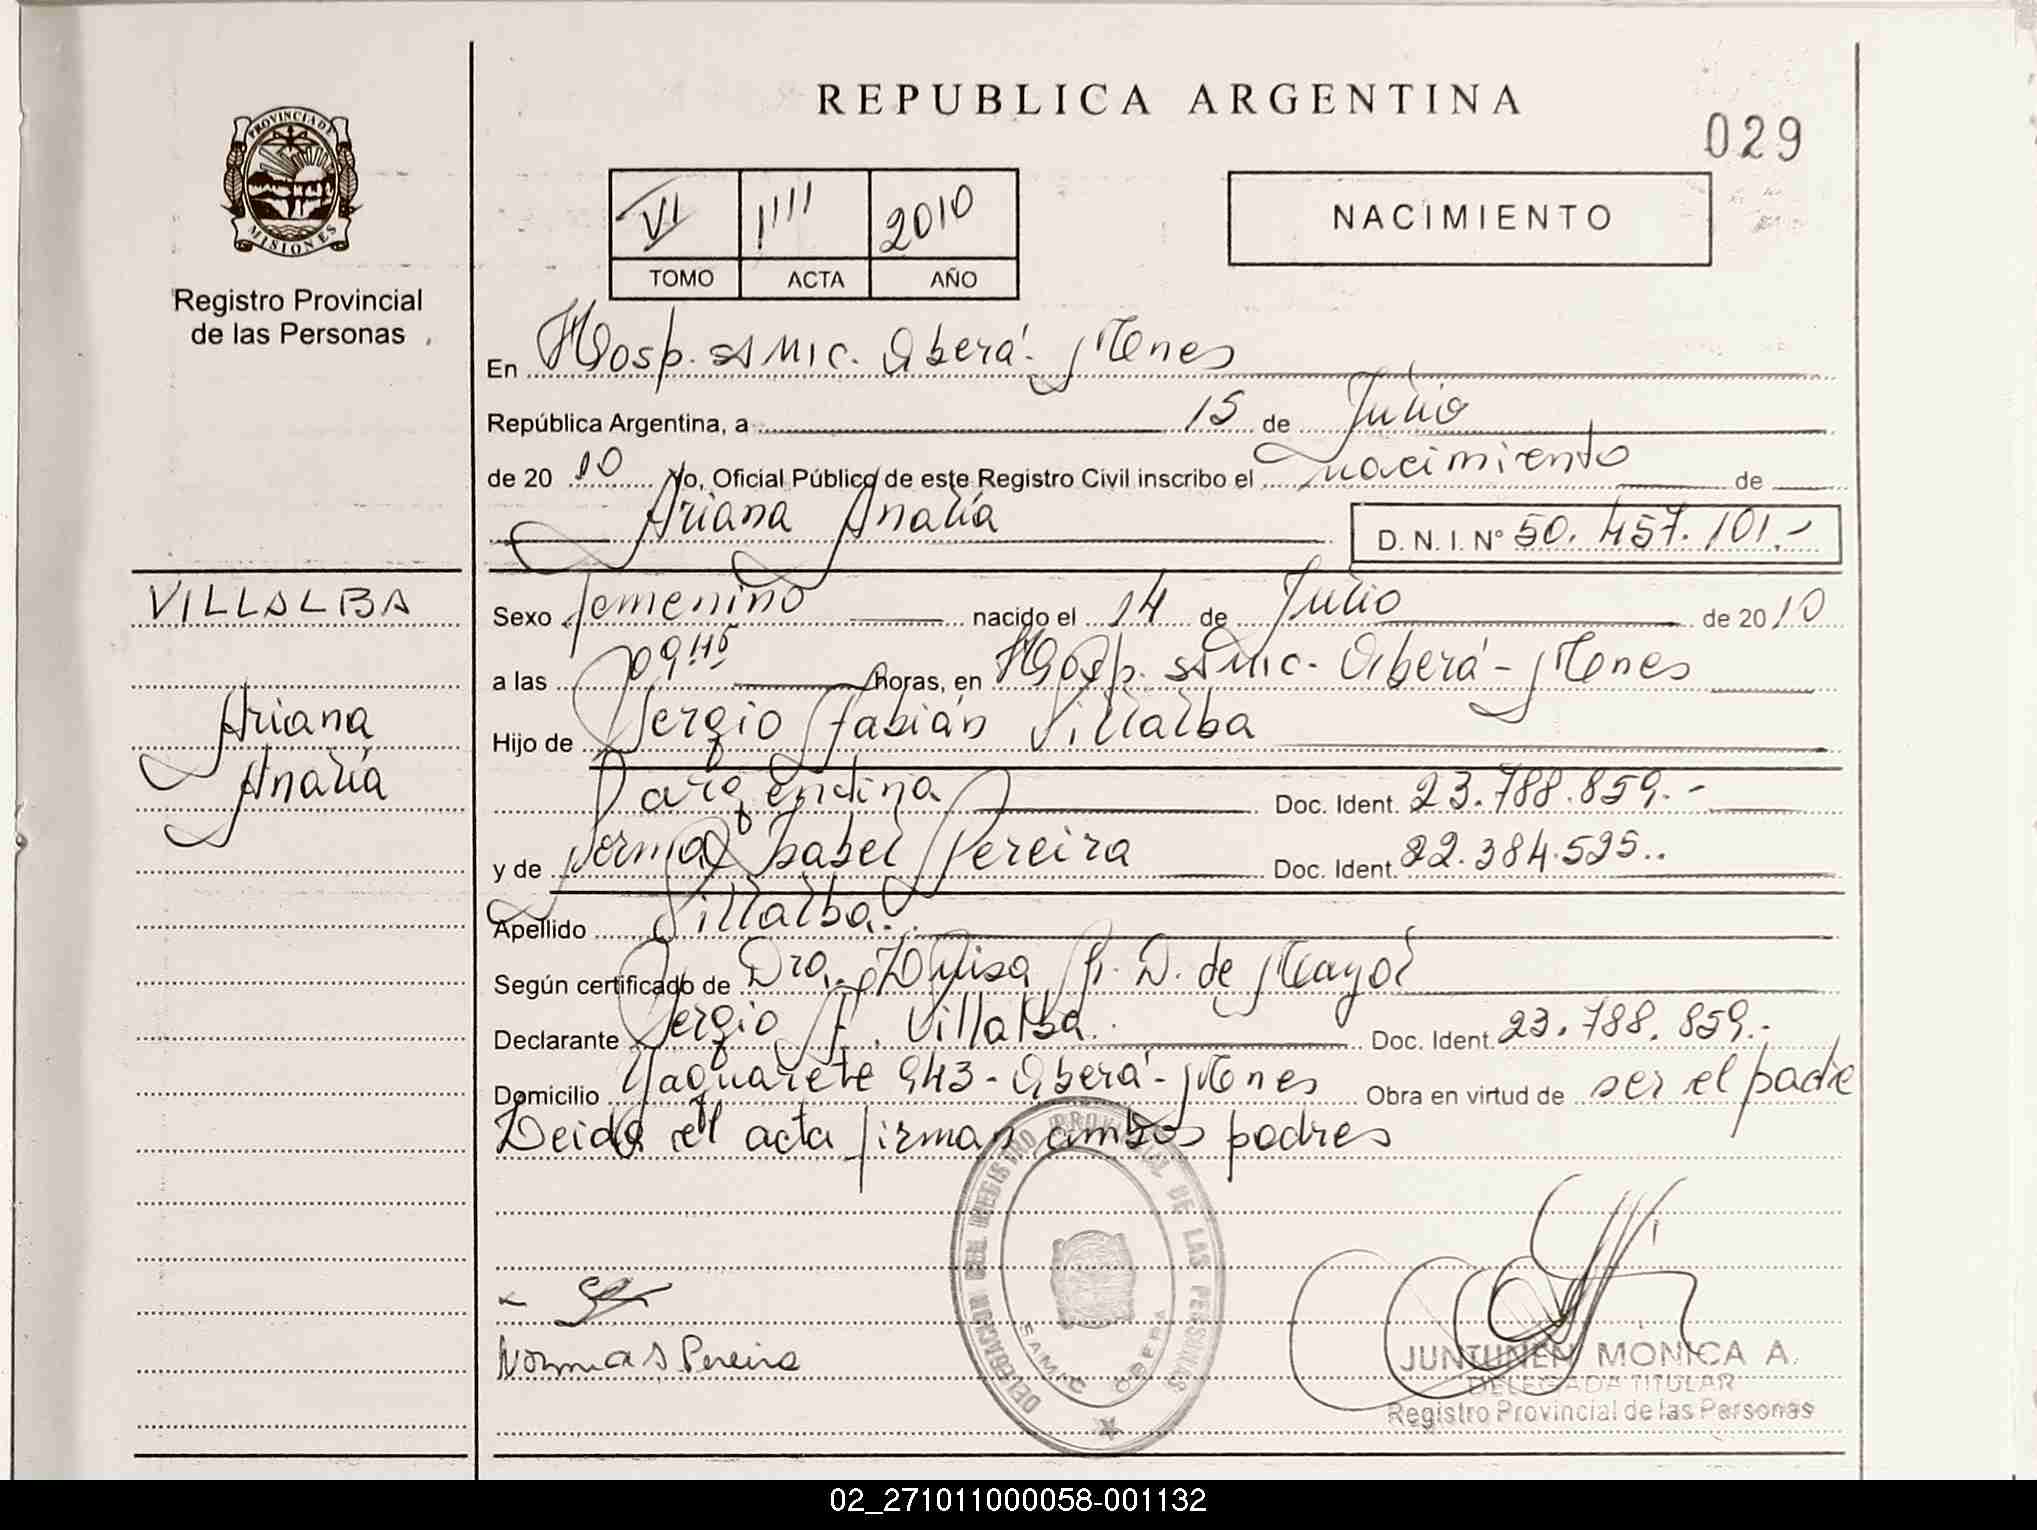 REPUBLICA ARGENTINA
029
PROVINCIA DE
MISIONES
Registro Provincial
de las Personas
VI 1111 2010
TOMO ACTA AÑO
NACIMIENTO
En Hosp. SAMIC. Oberá - Mnes
República Argentina, a 15 de Julio
de 2010 Yo, Oficial Público de este Registro Civil inscribo el nacimiento de
Ariana Analía D. N. I. N° 50.457.101.-
VILLALBA
Ariana
Analía
Sexo femenino nacido el 14 de Julio de 2010
a las 09:45 horas, en Hosp. SAMIC - Oberá - Mnes
Hijo de Sergio Fabián Villalba
argentina Doc. Ident. 23.788.859.-
y de Norma Isabel Pereira Doc. Ident. 22.384.525..
Apellido Villalba.
Según certificado de Dra. Luisa R. D. de Mayol
Declarante Sergio F. Villalba. Doc. Ident. 23.788.859.-
Domicilio Yaguarete 943 - Oberá - Mnes Obra en virtud de ser el padre
Leida el acta firman ambos padres
DELEGACION REGISTRO PROVINCIAL DE LAS PERSONAS
SAMIC OBERA
Norma I Pereira
JUNTUNEN MÓNICA A.
DELEGADA TITULAR
Registro Provincial de las Personas
02_271011000058-001132